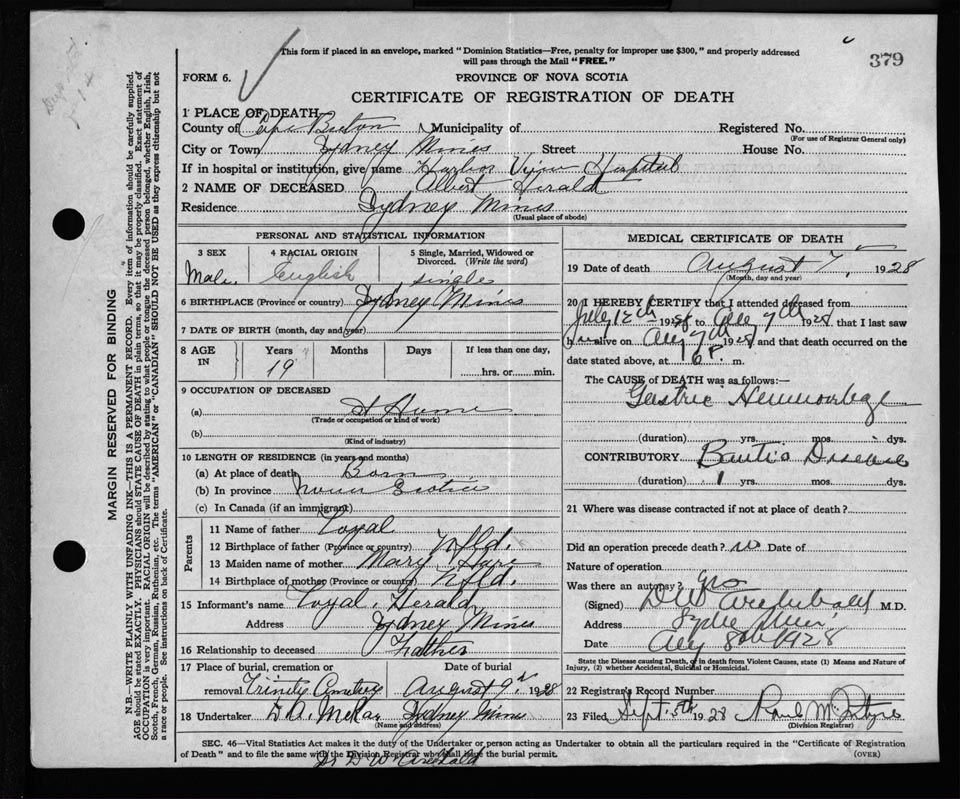 This form if placed in an envelope, marked "Dominion Statistics—Free, penalty for improper use $300," and properly addressed
will pass through the Mail "FREE."
379
FORM 6.
PROVINCE OF NOVA SCOTIA
CERTIFICATE OF REGISTRATION OF DEATH
1 PLACE OF DEATH
County of Cape Breton Municipality of Registered No.
(For use of Registrar General only)
City or Town Sydney Mines Street House No.
If in hospital or institution, give name Harbor View Hospital
2 NAME OF DECEASED Albert Herald
Residence Sydney Mines
(Usual place of abode)
PERSONAL AND STATISTICAL INFORMATION
3 SEX 4 RACIAL ORIGIN 5 Single, Married, Widowed or Divorced. (Write the word)
Male English single
6 BIRTHPLACE (Province or country) Sydney Mines
7 DATE OF BIRTH (month, day and year)
8 AGE IN Years Months Days If less than one day,
19 hrs. or min.
9 OCCUPATION OF DECEASED
(a) At Home
(Trade or occupation or kind of work)
(b)
(Kind of industry)
10 LENGTH OF RESIDENCE (in years and months)
(a) At place of death Born
(b) In province Nova Scotia
(c) In Canada (if an immigrant)
Parents
11 Name of father Loyal
12 Birthplace of father (Province or country) Nfld.
13 Maiden name of mother Mary
14 Birthplace of mother (Province or country) Nfld.
15 Informant's name Loyal Herald
Address Sydney Mines
16 Relationship to deceased Father
17 Place of burial, cremation or Date of burial
removal Trinity Cemetery August 9th 1928
18 Undertaker D. A. McKay Sydney Mines
(Name and address)
MEDICAL CERTIFICATE OF DEATH
19 Date of death August 7, 1928
(Month, day and year)
20 I HEREBY CERTIFY that I attended deceased from
July 12th 1928 to Aug 7th 1928, that I last saw
him alive on Aug 7th 1928 and that death occurred on the
date stated above, at P. m.
The CAUSE of DEATH was as follows:—
Gastric Hemmorhage
(duration) yrs. mos. dys.
CONTRIBUTORY Bantis Disease
(duration) 1 yrs. mos. dys.
21 Where was disease contracted if not at place of death?
Did an operation precede death? no Date of
Nature of operation
Was there an autopsy? no
(Signed) D W Archibald M.D.
Address Sydney Mines
Date Aug 8th 1928
State the Disease causing Death, or in death from Violent Causes, state (1) Means and Nature of
Injury, (2) whether Accidental, Suicidal or Homicidal.
22 Registrar's Record Number
23 Filed Sept. 5th 1928
(Division Registrar)
SEC. 46—Vital Statistics Act makes it the duty of the Undertaker or person acting as Undertaker to obtain all the particulars required in the "Certificate of Registration
of Death" and to file the same with the Division Registrar who shall issue the burial permit. (OVER)
Dr D W Archibald
MARGIN RESERVED FOR BINDING
N.B.—WRITE PLAINLY WITH UNFADING INK—THIS IS A PERMANENT RECORD. Every item of information should be carefully supplied.
AGE should be stated EXACTLY. PHYSICIANS should STATE CAUSE OF DEATH in plain terms, so that it may be properly classified. Exact statement of
OCCUPATION is very important. RACIAL ORIGIN will be described by stating to what people or tongue the deceased person belonged, whether English, Irish,
Scotch, French, German, Russian, Ruthenian, etc. The terms "AMERICAN" or "CANADIAN" SHOULD NOT BE USED as they express citizenship but not
a race or people. See instructions on back of Certificate.